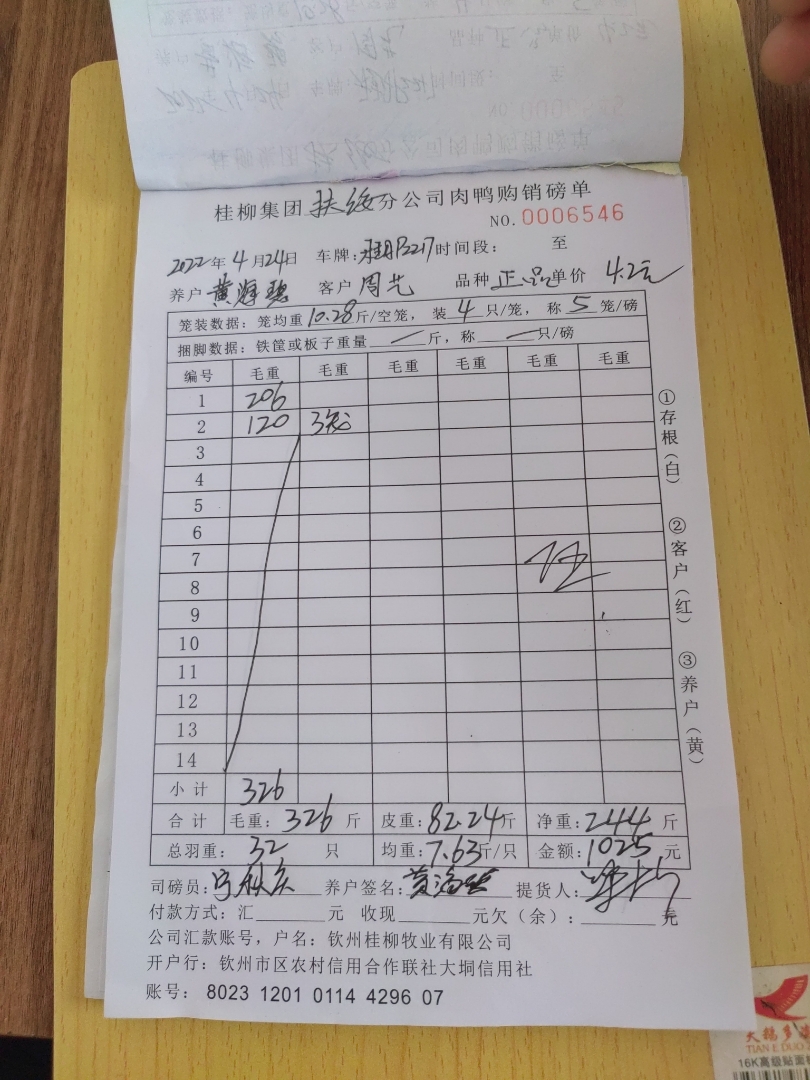 桂柳集团扶绥分公司肉鸭购销磅单
NO.0006546
2022年4月24日 车牌: 时间段: 至
养户 黄海碧 客户 周艺 品种 正品 单价 4.2元
笼装数据：笼均重10.28斤/空笼，装4只/笼，称5笼/磅
捆脚数据：铁筐或板子重量 / 斤，称 / 只/磅
编号 毛重 毛重 毛重 毛重 毛重 毛重
1 206
2 120 3笼
3
4
5
6
7
8
9
10
11
12
13
14
小计 326
合计 毛重:326斤 皮重:82.24斤 净重:244斤
总羽重: 32 只 均重:7.63斤/只 金额:1025元
司磅员: 养户签名:黄海碧 提货人:
付款方式：汇 元 收现 元欠（余）: 元
公司汇款账号，户名：钦州桂柳牧业有限公司
开户行：钦州市区农村信用合作联社大垌信用社
账号： 8023 1201 0114 4296 07
①存根（白） ②客户（红） ③养户（黄）
大鹅多
TIAN E DUO
16K高级贴面